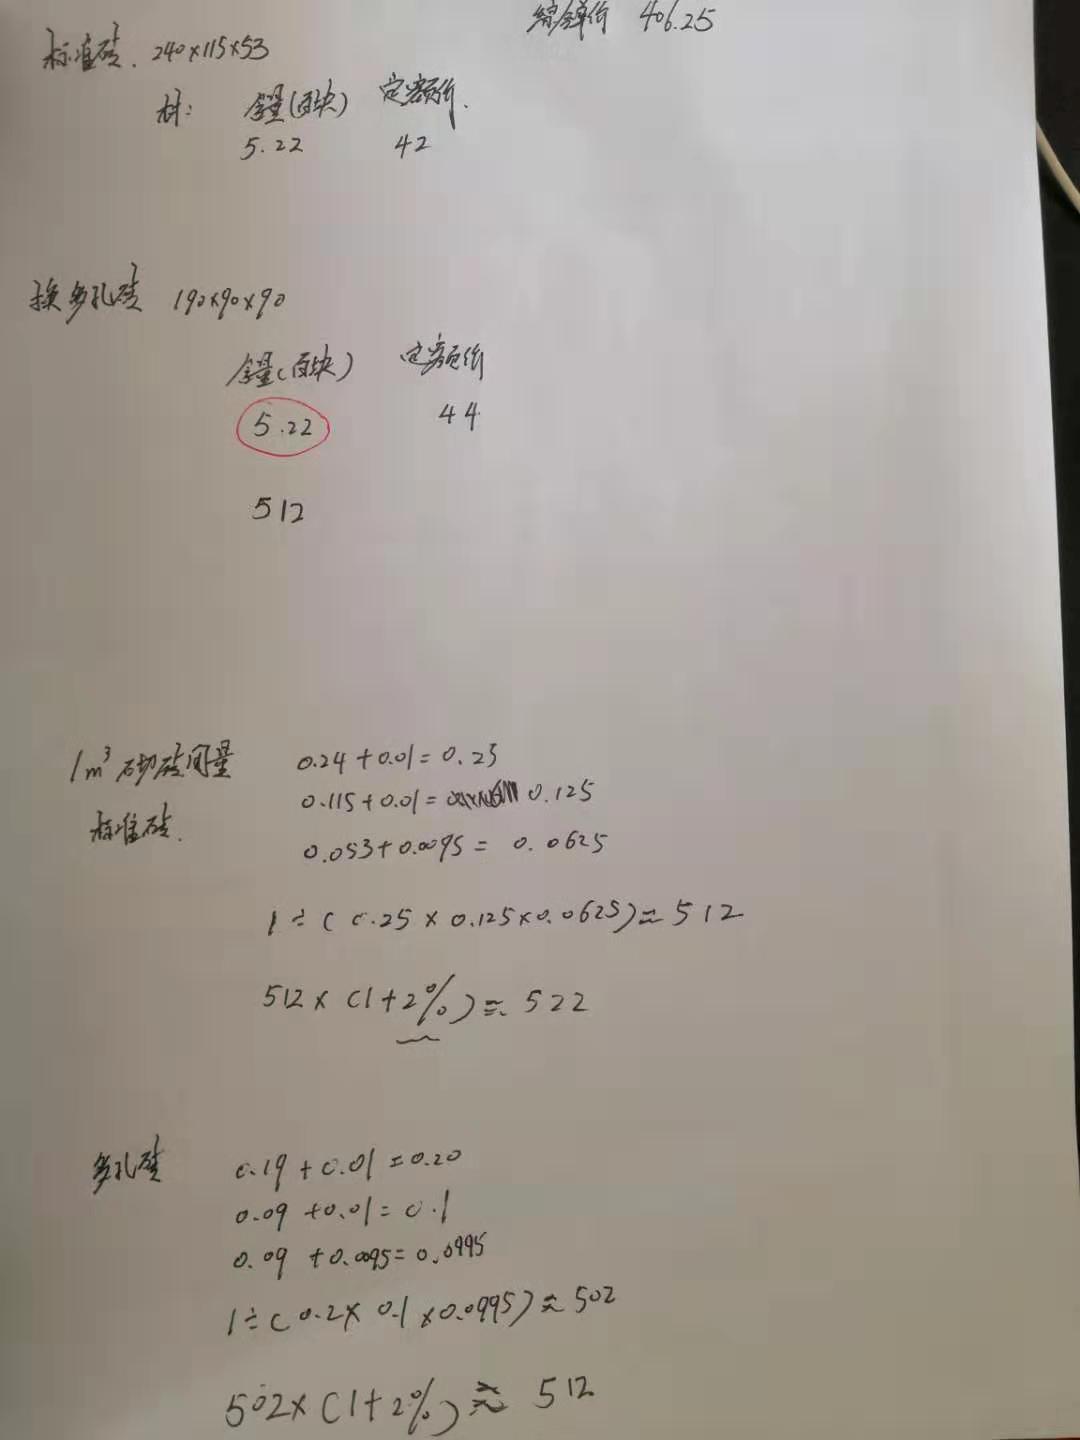 综合单价 406.25
标准砖. 240×115×53
材: 含量(百块) 定额价.
5.22 42
换多孔砖 190×90×90
含量(百块) 定额价
5.22 44
512
1m³砌砖用量 0.24+0.01=0.25
0.115+0.01= 0.125
标准砖.
0.053+0.0095= 0.0625
1÷(0.25×0.125×0.0625)≈512
512×(1+2%)≈522
多孔砖 0.19+0.01=0.20
0.09+0.01=0.1
0.09+0.0095=0.0995
1÷(0.2×0.1×0.0995)≈502
502×(1+2%)≈ 512